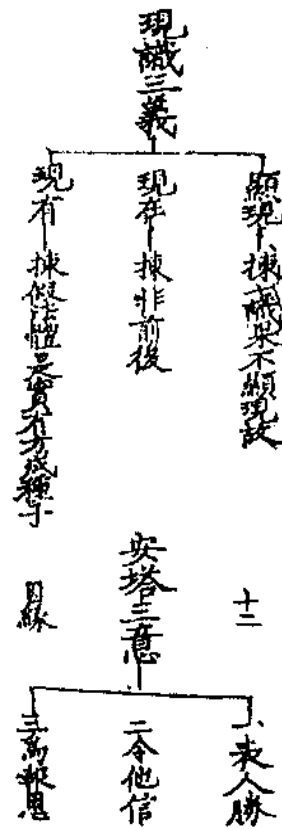 現識三義
顯現—揀識果不顯現故
現在—揀非前後
現有—揀假法體是實有方成種子
十二
因緣
安塔三意
一、表人勝
二令他信
三為報恩